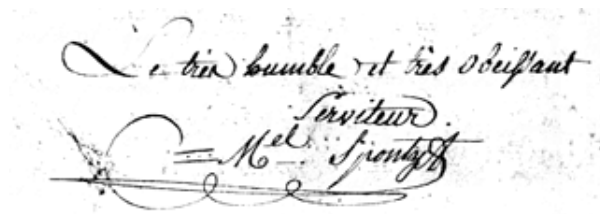 Le très humble et très obeissant
Serviteur.
= M.el Spontz